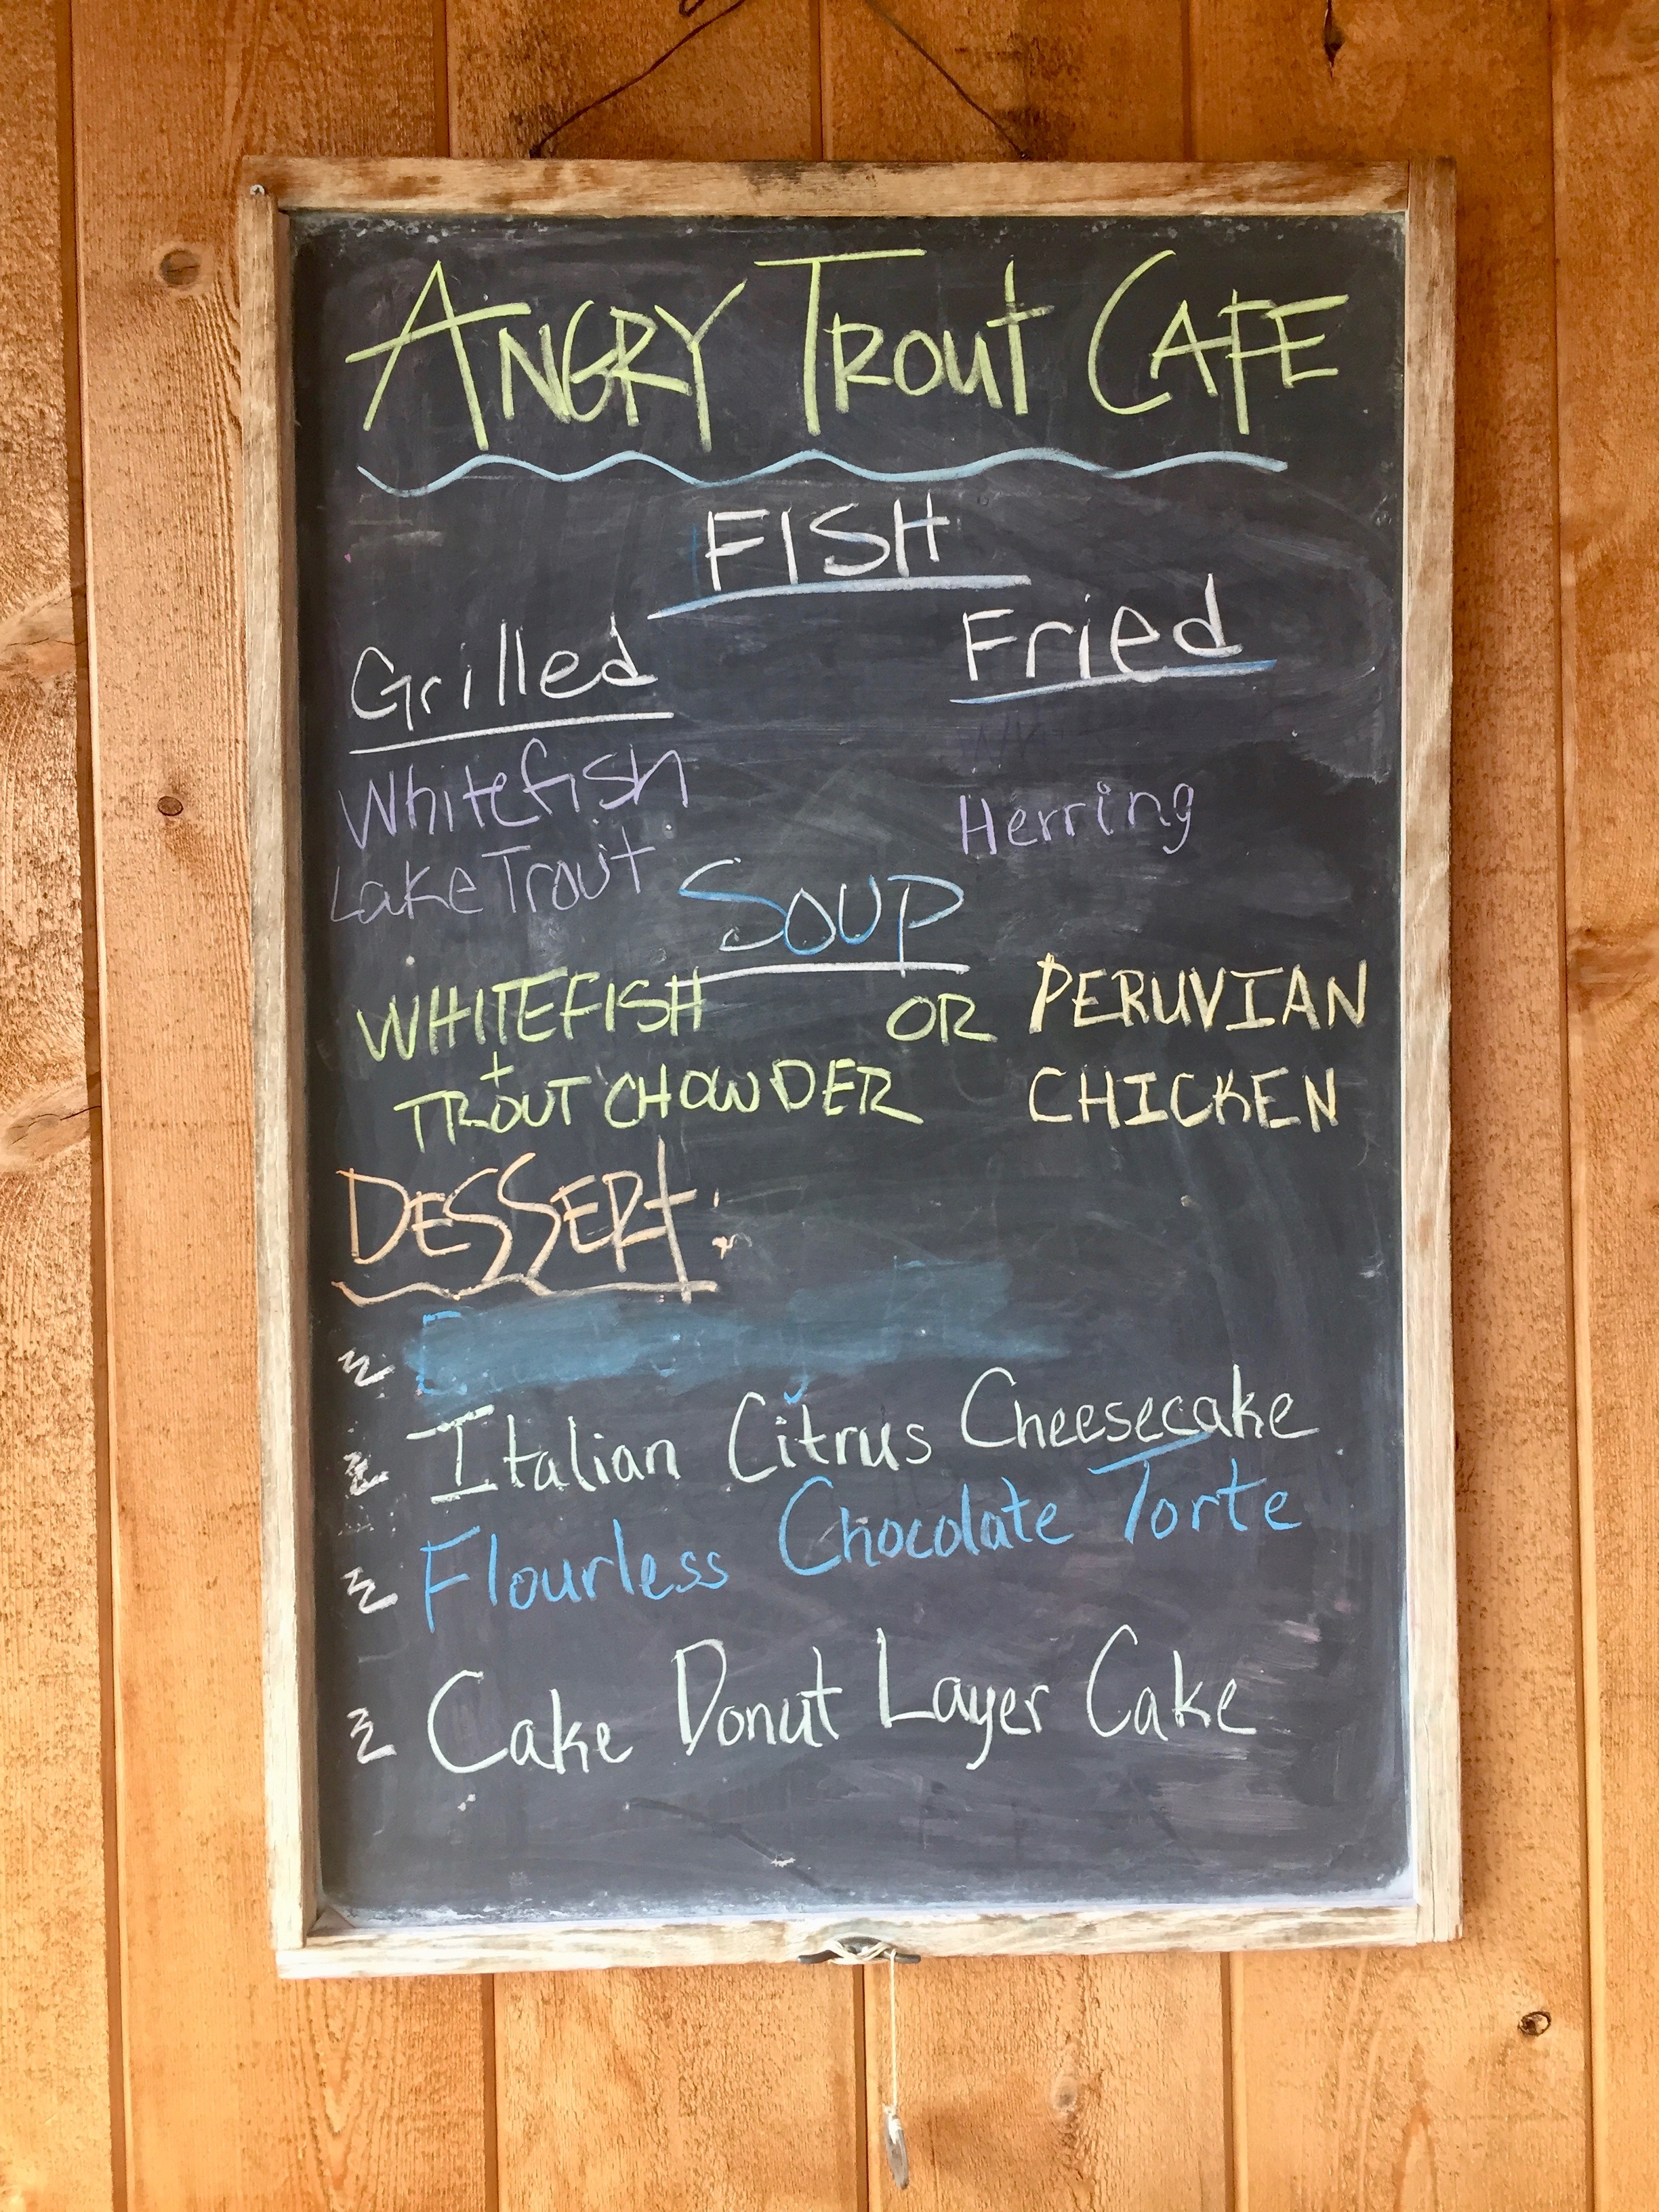 ANGRY TROUT CAFE
FISH
Grilled
Fried
Whitefish
Herring
Lake Trout
SOUP
WHITEFISH OR PERUVIAN
+
TROUT CHOWDER CHICKEN
DESSERT:
Italian Citrus Cheesecake
Flourless Chocolate Torte
Cake Donut Layer Cake